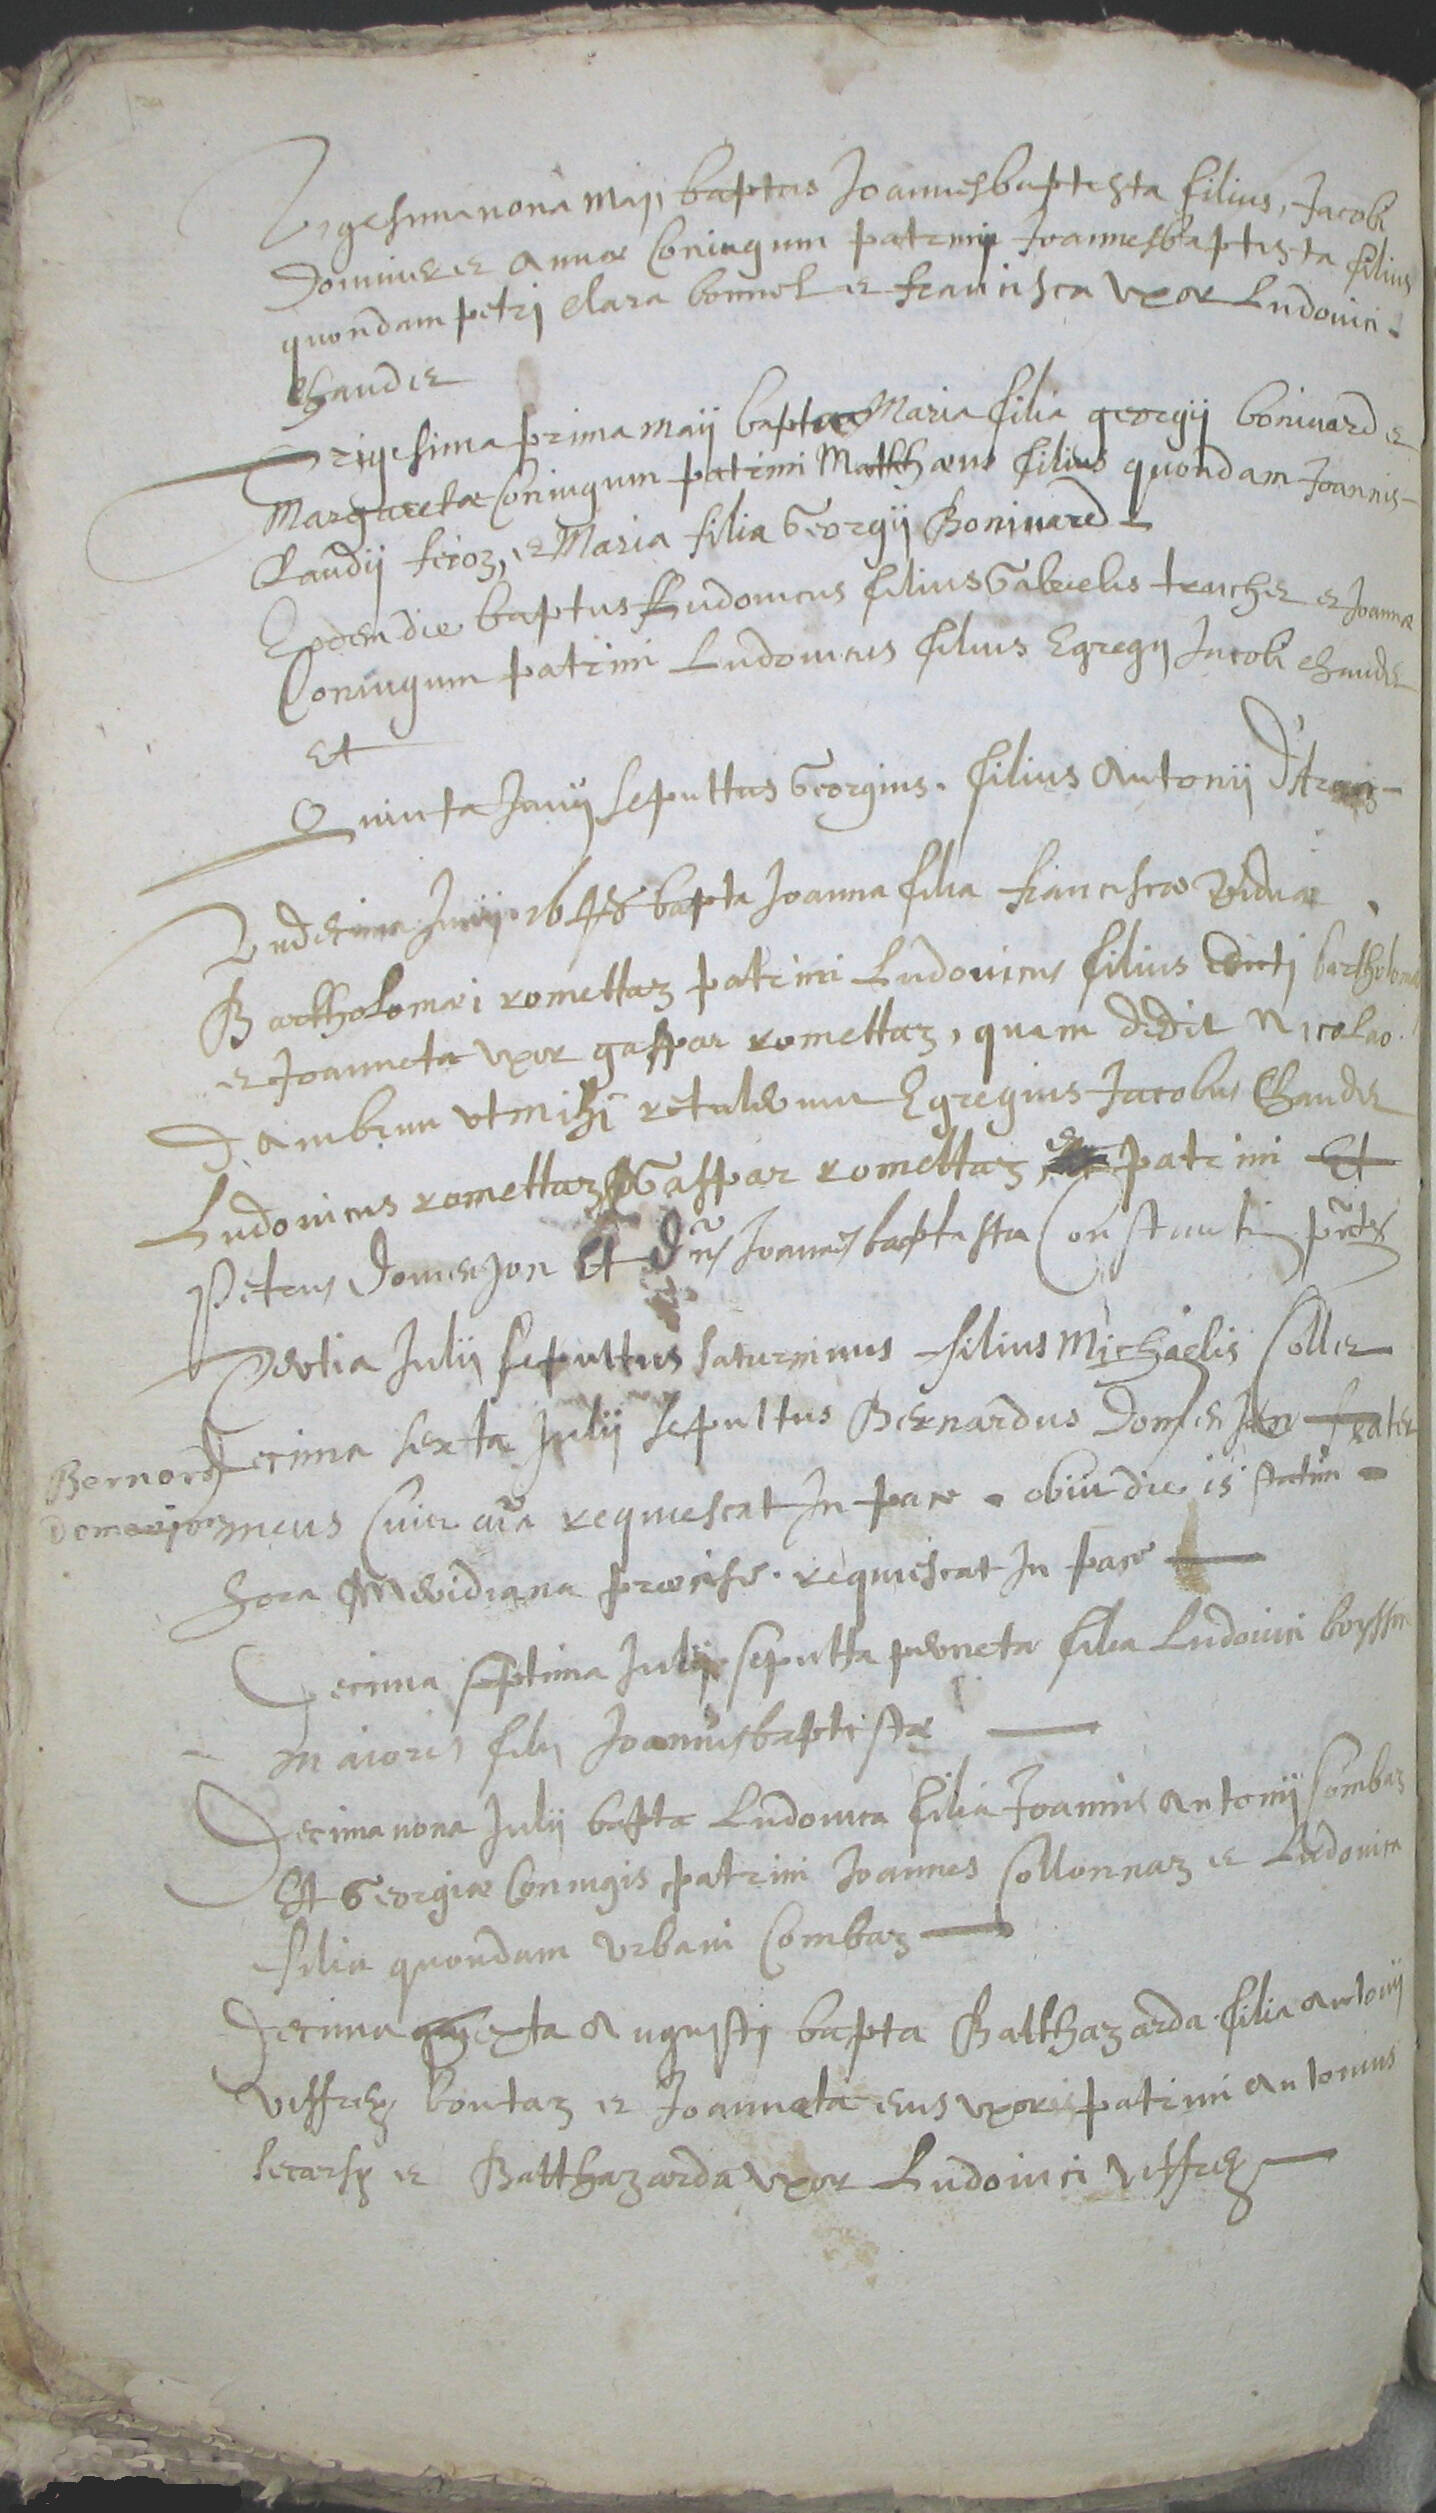 Vigesima nona Maij baptus Joannesbaptista filius Jacobi
Domine et Annæ Coniugum patrini Joannesbaptista filius
quondam petri clara bonnel et francisca vxor Ludovici
Chaudet
Trigesima prima maij bapta Maria filia georgij bonivard et
Margaretæ Coniugum patrini Matthæus filius quondam Joannis
Claudij feroz, et Maria filia Georgij Bonivard
Eodem die baptus Ludovicus filius Gabrielis truchet et Joannæ
Coniugum patrini Ludovicus filius Egregij Jacobi chaudet
Et
Quinta Junij sepultus Georgius filius Antonij
Undecima Junij bapta Joanna filia franciscæ viduæ
Bartholomæi romettaz patrini Ludovicus filius dicti bartholomæi
et Joanneta vxor gaspar romettaz, quam dedit Nicolao
Dambrun ut mihi retulerunt Egregius Jacobus Chaudet
Ludovicus romettaz Gaspar romettaz patrini Et
Petrus Domenjon Et Dñs Joannesbaptista Constanti
Tertia Julij sepultus saturninus filius Michaelis Collet
Decima sexta Julij sepultus Bernardus Domenjon frater
Bernard
Domenjon
meus Cuius aĩa requiescat In pace. obiit die is
hora Meridiana præcise. requiescat In pace
Decima septima Julij sepulta perneta filia Ludovici
maioris filij Joannisbaptistæ
Decima nona Julij bapta Ludovica filia Joannis Antonij Combaz
Et Georgiæ Coniugis patrini Joannes Collonnaz et Ludovica
filia quondam Urbani Combaz
Decima sexta Augusti bapta Balthazarda filia Antonij
Viffrey bontaz et Joanneta eius vxoris patrini Antonius
et Balthazarda vxor Ludovici Viffrey